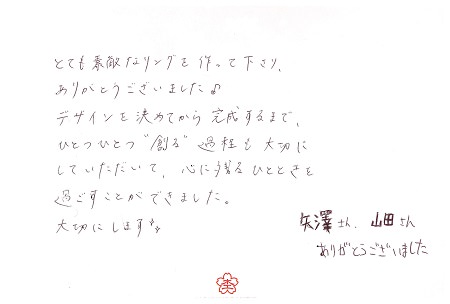 とても素敵なリングを作って下さり、
ありがとうございました♪
デザインを決めてから完成するまで、
ひとつひとつ"創る"過程も大切に
していただいて、心に残るひとときを
過ごすことができました。
大切にします
矢澤さん、山田さん
ありがとうございました